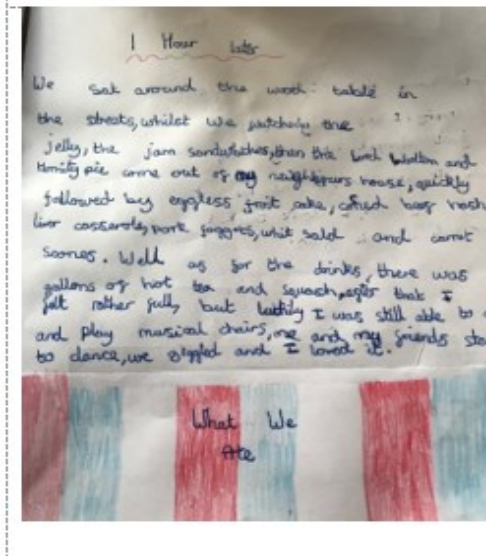 1 Hour later
We sat around the wood table in
the streets, whilst we watched the
jelly, the jam sandwiches, then the and
pie came out of my neighbours house, quickly
followed by eggless fruit cake, corned beef hash
liver casserole, pork faggots, and carrot
Scones. Well as for the drinks, there was
gallons of hot tea and squash, after that I
felt rather full, but luckily I was still able to
and play musical chairs, me and my friends
to dance, we giggled and I loved it.
What We
Ate